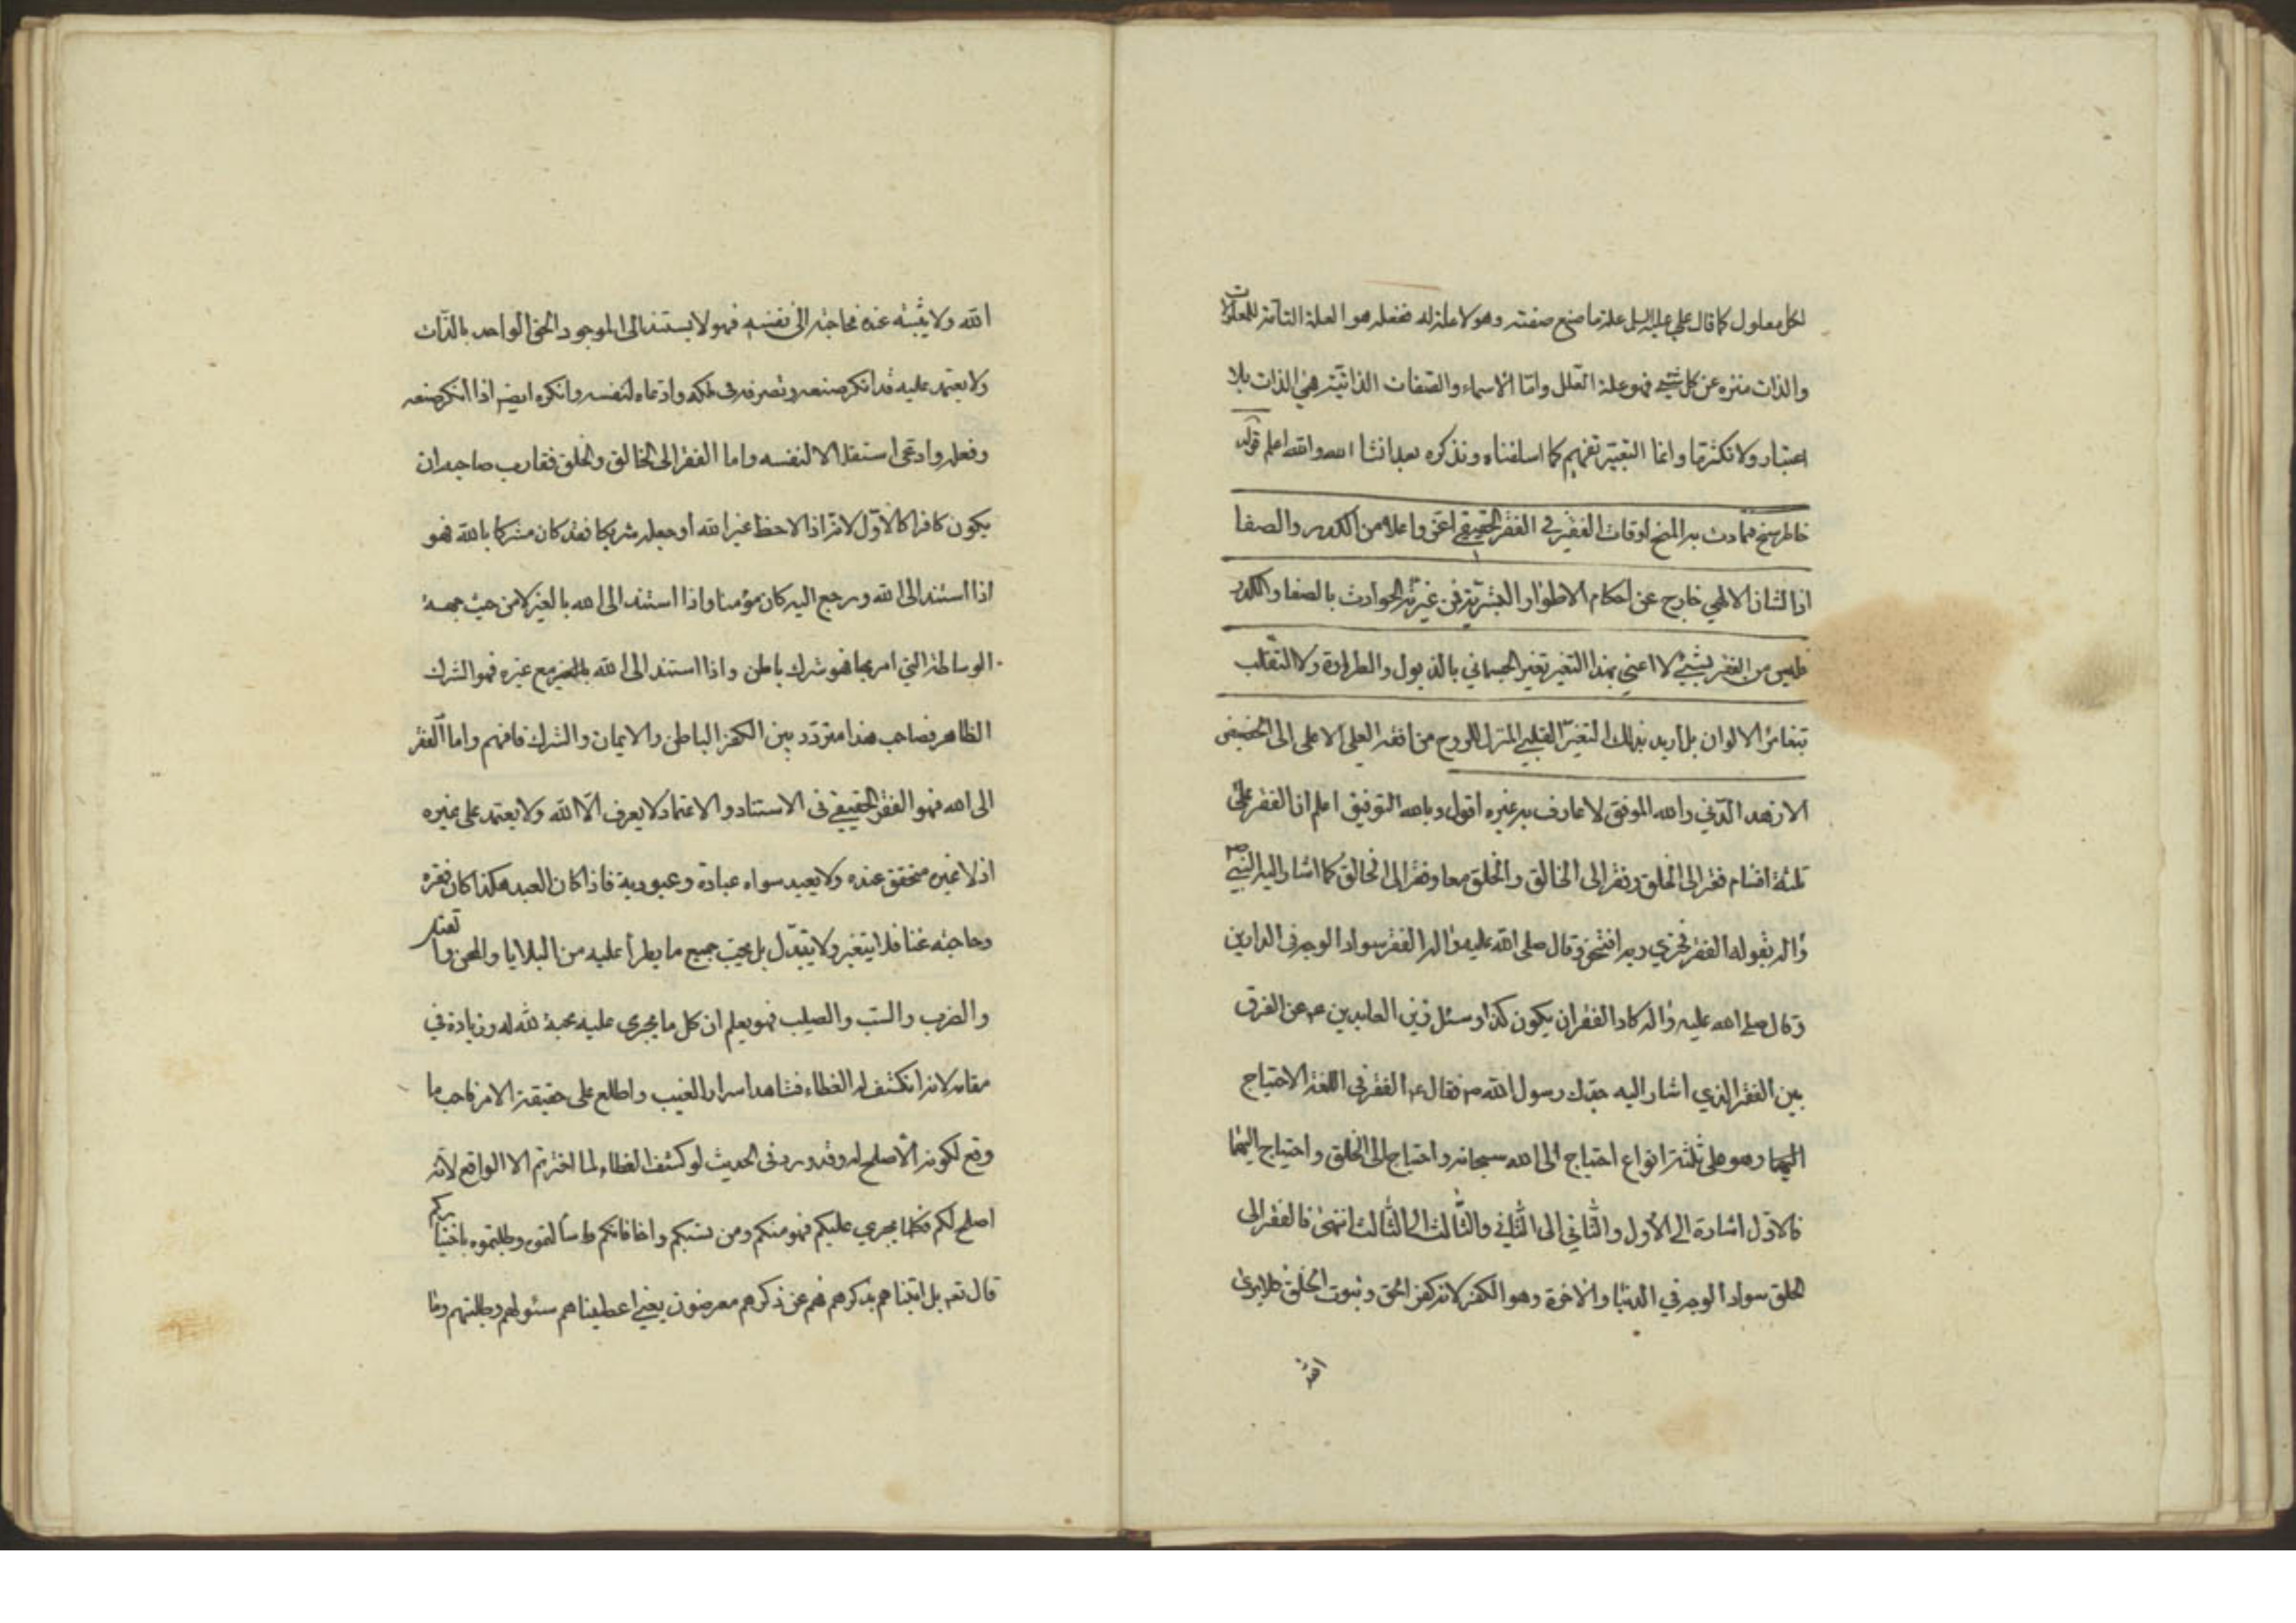 لكل معلول كما قال علي عليه السلم علة ما صنع صنعته وهو لا علة له ففعله هو العلة التامة للمعلولات
والذات منزه عن كل شيء فهو علة العلل واما الاسماء والصفات الذاتية هي الذات بلا
اعتبار ولا تكثرها وانما التعبير تفهيم كما اسلفناه ونذكره بعد انشا الله والله اعلم قوله
خاطر سنح فمادت به المنح اوقات الفقير في الفقر الحقيقي اعز واعلا من الكدر والصفا
اذ الشان الالهي خارج عن احكام الاطوار البشرية فمن غيرته الحوادث بالصفا والكدر
فليس من الفقر بشيء لا اعني بهذا التغير تغير الجسماني بالذبول والطراوة ولا التقلب
بتغاير الالوان بل اريد بذلك التغير القلبي المنزل للروح من افقه العلى الاعلى الى الحضيض
الازهد الدني والله الموفق لا عارف به غيره اقول وبالله التوفيق اعلم ان الفقر على
ثلثة اقسام فقر الى الخلق وفقر الى الخالق والخلق معا وفقر الى الخالق كما اشار اليه النبي ص
وآله بقوله الفقر فخري وبه افتخر وقال صلى الله عليه وآله الفقر سواد الوجه في الدارين
وقال صلى الله عليه وآله كاد الفقر ان يكون كفرا وسئل زين العابدين ع عن الفرق
بين الفقر الذي اشار اليه جدك رسول الله ص فقال ع الفقر في اللغة الاحتياج
اليهما وهو على ثلثة انواع احتياج الى الله سبحانه واحتياج الى الخلق واحتياج اليهما
فالاول اشارة الى الأول والثاني الى الثاني والثالث الى الثالث انتهى فالفقر الى
الخلق سواد الوجه في الدنيا والاخرة وهو الكفر لانه كفر الحق وثبوت الخلق فلا يرى
الله
الله ولا يثبته عنده فحاجته الى نفسه فهو لا يستند الى الموجود الحق الواحد بالذات
ولا يعتمد عليه قد انكر صنعه وتصرفه في ملكه وادعاه لنفسه وانكره ايضا اذا انكر صنعه
وفعله وادعى استقلالا لنفسه واما الفقر الى الخالق والخلق فقارب صاحبه ان
يكون كافرا كالاول لانه اذا لاحظ غير الله او جعله شريكا فقد كان مشركا بالله فهو
اذا استند الى الله ورجع اليه كان مؤمنا واذا استند الى الله بالغير لا من حيث جهة
الوساطة التي امر بها فهو شرك باطن واذا استند الى الله مع غيره فهو الشرك
الظاهر فصاحب هذا متردد بين الكفر الباطن والايمان والشرك فافهم واما الفقر
الى الله فهو الفقر الحقيقي في الاستناد والاعتماد لا يعرف الا الله ولا يعتمد على غيره
اذ لا غيره متحقق عنده ولا يعبد سواه عبادة وعبودية فاذا كان العبد هكذا كان فقره
وحاجته غنا فلا يتغير ولا يتبدل بل يحب جميع ما يطرأ عليه من البلايا والمحن و
والضرب والسب والصلب فهو يعلم ان كل ما يجري عليه محبة لله له وزيادة في
مقامه لانه انكشف له الغطاء فشاهد اسرار الغيب واطلع على حقيقة الامر فاحب ما
وقع لكونه الاصلح له وقد ورد في الحديث لو كشف الغطاء لما اخترتم الا الواقع لانه
اصلح لكم فكلما يجري عليكم فهو منكم ومن نسبكم واضافاتكم ما سألتموه وطلبتموه باختياركم
قال تعه بل اتيناهم بذكرهم فهم عن ذكرهم معرضون يعني اعطيناهم سئولهم وطلبتهم وما